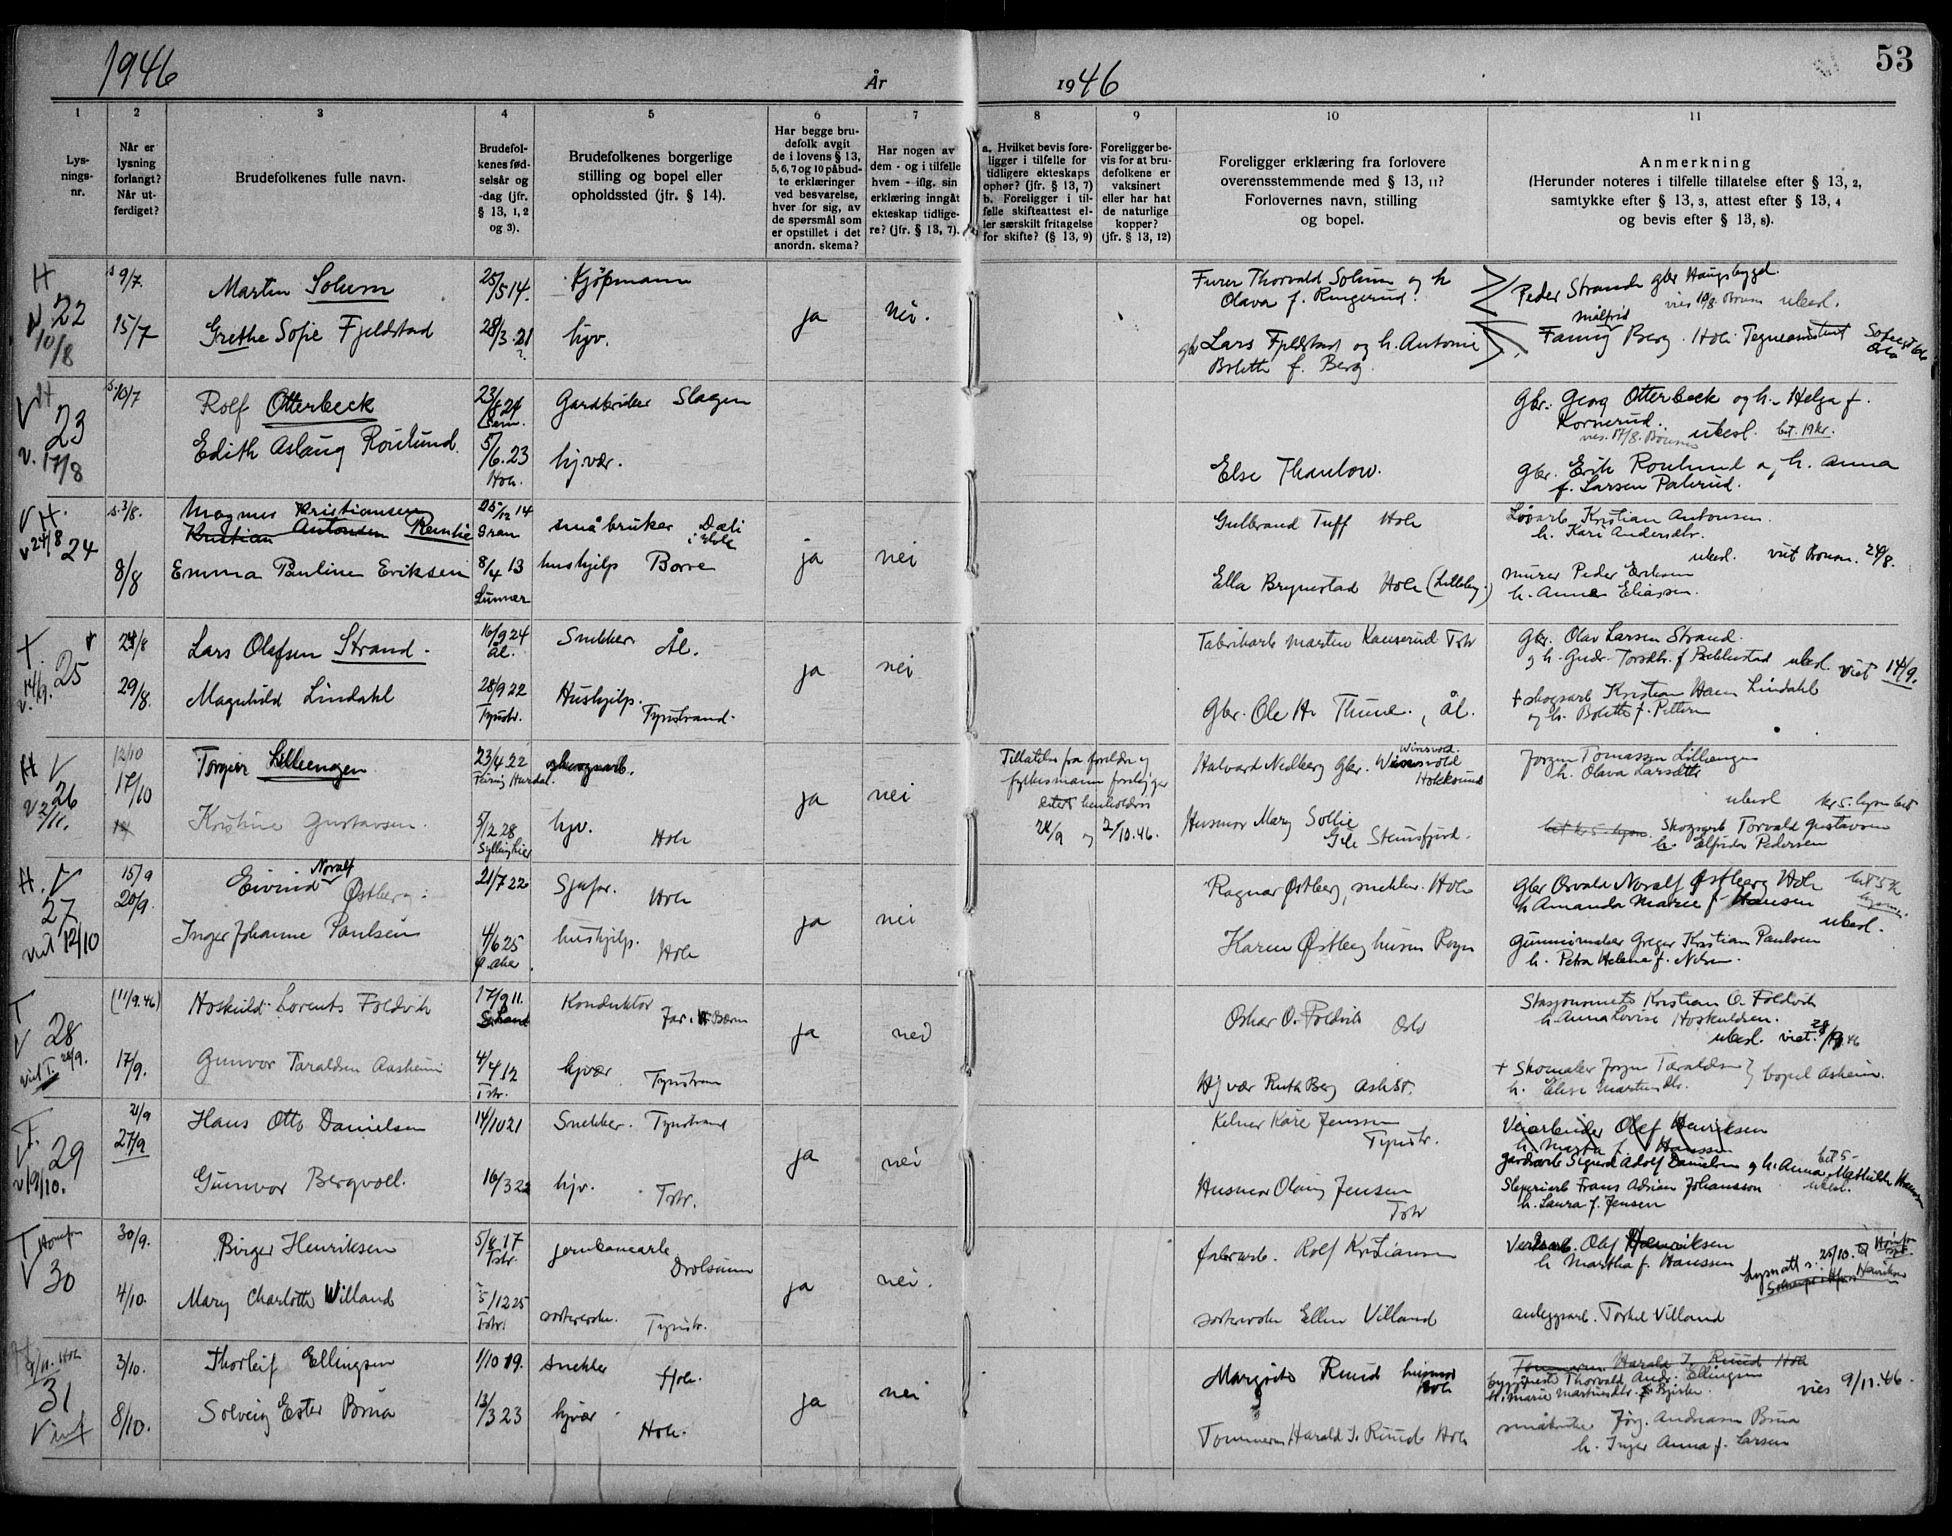 1946
År
1946
53
1
Lys-
nings-
nr.
2
Når er
lysning
forlangt?
Når ut-
ferdiget?
3
Brudefolkenes fulle navn.
4
Brudefol-
kenes fød-
selsår og
-dag (jfr.
§ 13, 1, 2
og 3).
5
Brudefolkenes borgerlige
stilling og bopel eller
opholdssted (jfr. § 14).
6
Har begge bru-
defolk avgit
de i lovens § 13,
5, 6, 7 og 10 påbud-
te erklæringer
ved besvarelse,
hver for sig, av
de spørsmål som
er opstillet i det
anordn. skema?
7
Har nogen av
dem - og i tilfelle
hvem - iflg. sin
erklæring inngåt
ekteskap tidlige-
re? (jfr. § 13, 7).
8
a. Hvilket bevis fore-
ligger i tilfelle for
tidligere ekteskaps
ophør? (jfr. § 13, 7)
b. Foreligger i til-
felle skifteattest el-
ler særskilt fritagelse
for skifte? (§ 13, 9)
9
Foreligger be-
vis for at bru-
defolkene er
vaksinert
eller har hat
de naturlige
kopper?
(jfr. § 13, 12)
10
Foreligger erklæring fra forlovere
overensstemmende med § 13, 11?
Forlovernes navn, stilling
og bopel.
11
Anmerkning
(Herunder noteres i tilfelle tillatelse efter § 13, 2,
samtykke efter § 13, 3, attest efter § 13, 4
og bevis efter § 13, 8).
H
22
10/8
9/7.
15/7
Martin Solum
Grethe Sofie Fjeldstad
25/5 14.
28/3.21
Kjøpmann
hjv.
ja
nei.
Furer Thorvald Solum og h
Olava f. Ringerud.
gbr Lars Fjeldstad og h. Antonie
Bolette f. Berg.
Peder Strande gbr Haugsbygd.
ubesl.
målfrid
Fanny Berg. Hole
V H
23
v. 17/8
s. 10/7
Rolf Otterbeck
Edith Aslaug Roulund.
23/8 24
Sem.
5/6.23
Hole.
Gardbruker Slagen
hj.vær.
Else Thaulow.
Gbr. Georg Otterbeck og h. Helga f.
Kornerud.
vies. 17/8. Bønsnes ubesl. bet. 19 kr.
Gbr. Erik Roulund o, h. Anna
f. Larsen Palerud.
V H.
v 24/8 24
s. 3/8.
8/8
Magnus Kristiansen
Kristian Antonsen Remlie
Emma Pauline Eriksen
25/12 14
Gran
8/4 13
Lunner
småbruker Dæli
i Hole
hushjelp Borre
ja
nei
Gulbrand Tuff Hole
Ella Brynestad Hole
Løsarb. Kristian Antonsen.
h. Kari Andersdtr.
ubesl. viet Bønsn. 24/8.
murer Peder Eriksen
h. Anna Eliassen.
25
v. 14/9.
24/8
29/8.
Lars Olafsen Strand.
Magnhild Lindahl
16/9 24
Ål.
28/9 22
Tynstr.
Snekker Ål.
Hushjelp. Tynstrand.
ja
nei
Fabrikarb Martin Kauserud Tstr
Gbr. Ole H. Thune., Ål.
Gbr. Olav Larsen Strand.
og h. Gudr. Torsdtr. f ubesl. viet 14/9.
+ skogsarb Kristian Hans Lindahl
og h. Bolette f.
H V
26
v 2/11.
12/10
17/10
Torgier Lilleengen
Kristine Gustavsen.
23/4 22
Hurdal.
5/12 28
skogsarb.
hjv. Hole
ja
nei
Tillatelse fra foreldre og
fylkesmann foreligger
henholdsvis
24/9 og 2/10.46.
Halvard Nedberg Gbr.
Husmor Mary Sollie
Steinsfjord.
Jørgen Tomassen Lilleengen
h. Olava Larsdtr
ubesl kr 5. lysn bet
Skogsarb Torvald Gustavsen
h. Elfrida Pedersen
H. V
27
viet 12/10
15/9
20/9.
Eivind Noralf Østberg.
Inger Johanne Paulsen
21/7 22
4/6 25
Sjåfør. Hole
hushjelp. Hole
ja
nei
Ragnar Østberg, snekker. Hole
Karen Østberg husm
Gbr Osvald Noralf Østberg Hole
h Amanda Marie f Hansen
ubesl.
Gummimaker Greger Kristian Paulsen
h. Petra Helene f. Nilsen.
T
V 28
viet T. 28/9.
(11/9.46)
17/9.
Hoskuld Lorents Foldvik
Gunvor Taraldsen Aasheim
17/9 11.
4/4 12
Tstr.
Konduktør
hjvær Tynstran
ja
nei
Oskar O. Foldvik Oslo
Hjvær Ruth Berg
Kristian O. Foldvik
h. Anna Lovise Hoskuldsen.
ubesl. viet.
+ Skomaker Jørgen Taraldsen
h. Elise Martinsdtr. bopel Asheim.
T.
V 29
v 19/10.
21/9
27/9
Hans Otto Danielsen
Gunvor Bergvoll.
14/10 21
16/3 22
Snekker. Tynstrand
hjv. Tstr.
ja
nei
Kelner Kåre Jensen
Tynstr.
Husmor Olaug Jensen
Tstr
Olef Henriksen
h. Marta f. Hanssen
gardsarb Sigurd Adolf Danielsen og h. Anna Mathilde Hansen
bet 5-
ubesl.
Sliperiarb Frans Adrian Johansson
h. Laura f. Jensen
T Hønefoss
V 30
30/9.
4/10.
Birger Henriksen
Mary Charlotte Villand
5/6 17
Tstr.
5/12 25
Tstr.
jernbanearb
Drolsum
Tynstr.
ja
nei.
fabr.arb. Rolf Kristiansen
Ellen Villand
Olef Henriksen
h Martha f. Hanssen
lysnatt s. 25/10.
anleggsarb. Torkel Villand
9/11. Hole
31
V
3/10.
8/10.
Thorleif Ellingsen
Solveig Ester Brua
1/10 19.
13/3 23
snekker Hole.
hjvær Hole.
ja
nei
Margit Ruud husmor
Hole
Tømmerm Harald I. Ruud Hole
Tømmerm. Harald I. Ruud Hole
Thorvald Andr. Ellingsen
h. Marie Martinsdtr. f Bjerke. vies 9/11.46.
småbruker Jørg. Andreasen Brua
h. Inger Anna f. Larsen